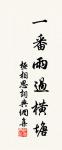 一番雨過橫塘
極相思詞典網喜